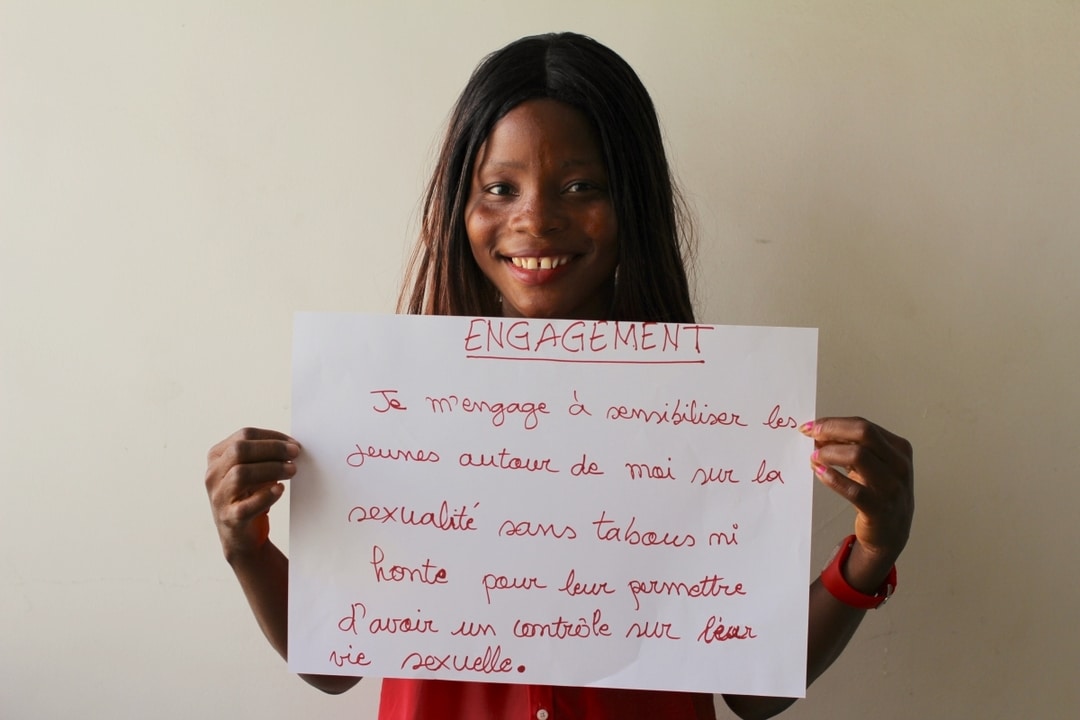 ENGAGEMENT
Je m'engage à sensibiliser les
jeunes autour de moi sur la
sexualité sans tabous ni
honte pour leur permettre
d'avoir un contrôle sur leur
vie sexuelle.